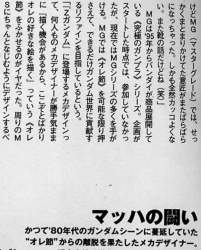 けどMG（マスターグレード）では、せっ
になっちゃった。しかも全然カッコよくな
い。また靴の話だけどね（笑）」
　MGは'95年からバンダイが商品展開して
いる〈究極のガンプラ〉シリーズ。企画が
スタートした時点では、参加していなかっ
たが、現在ではMGシリーズの多くを手が
ける。MGでは《オレ節》を可能な限り抑
さえて、できるだけガンダム世界に貢献す
るリファインを目指しているという。
「『Zガンダム』に登場するメカデザインっ
て、何人ものメカデザイナーが勝手気まま
に描く機会があるから、「ここぞとばかり
オレの好きな絵を描く」っていう《オレ
節》をふかせるのがイヤだった。周りのM
Sにちゃんとなじむようにデザインするべ
マッハの闘い
かつて'80年代のガンダムシーンに蔓延していた
"オレ節"からの離脱を果たしたメカデザイナー、